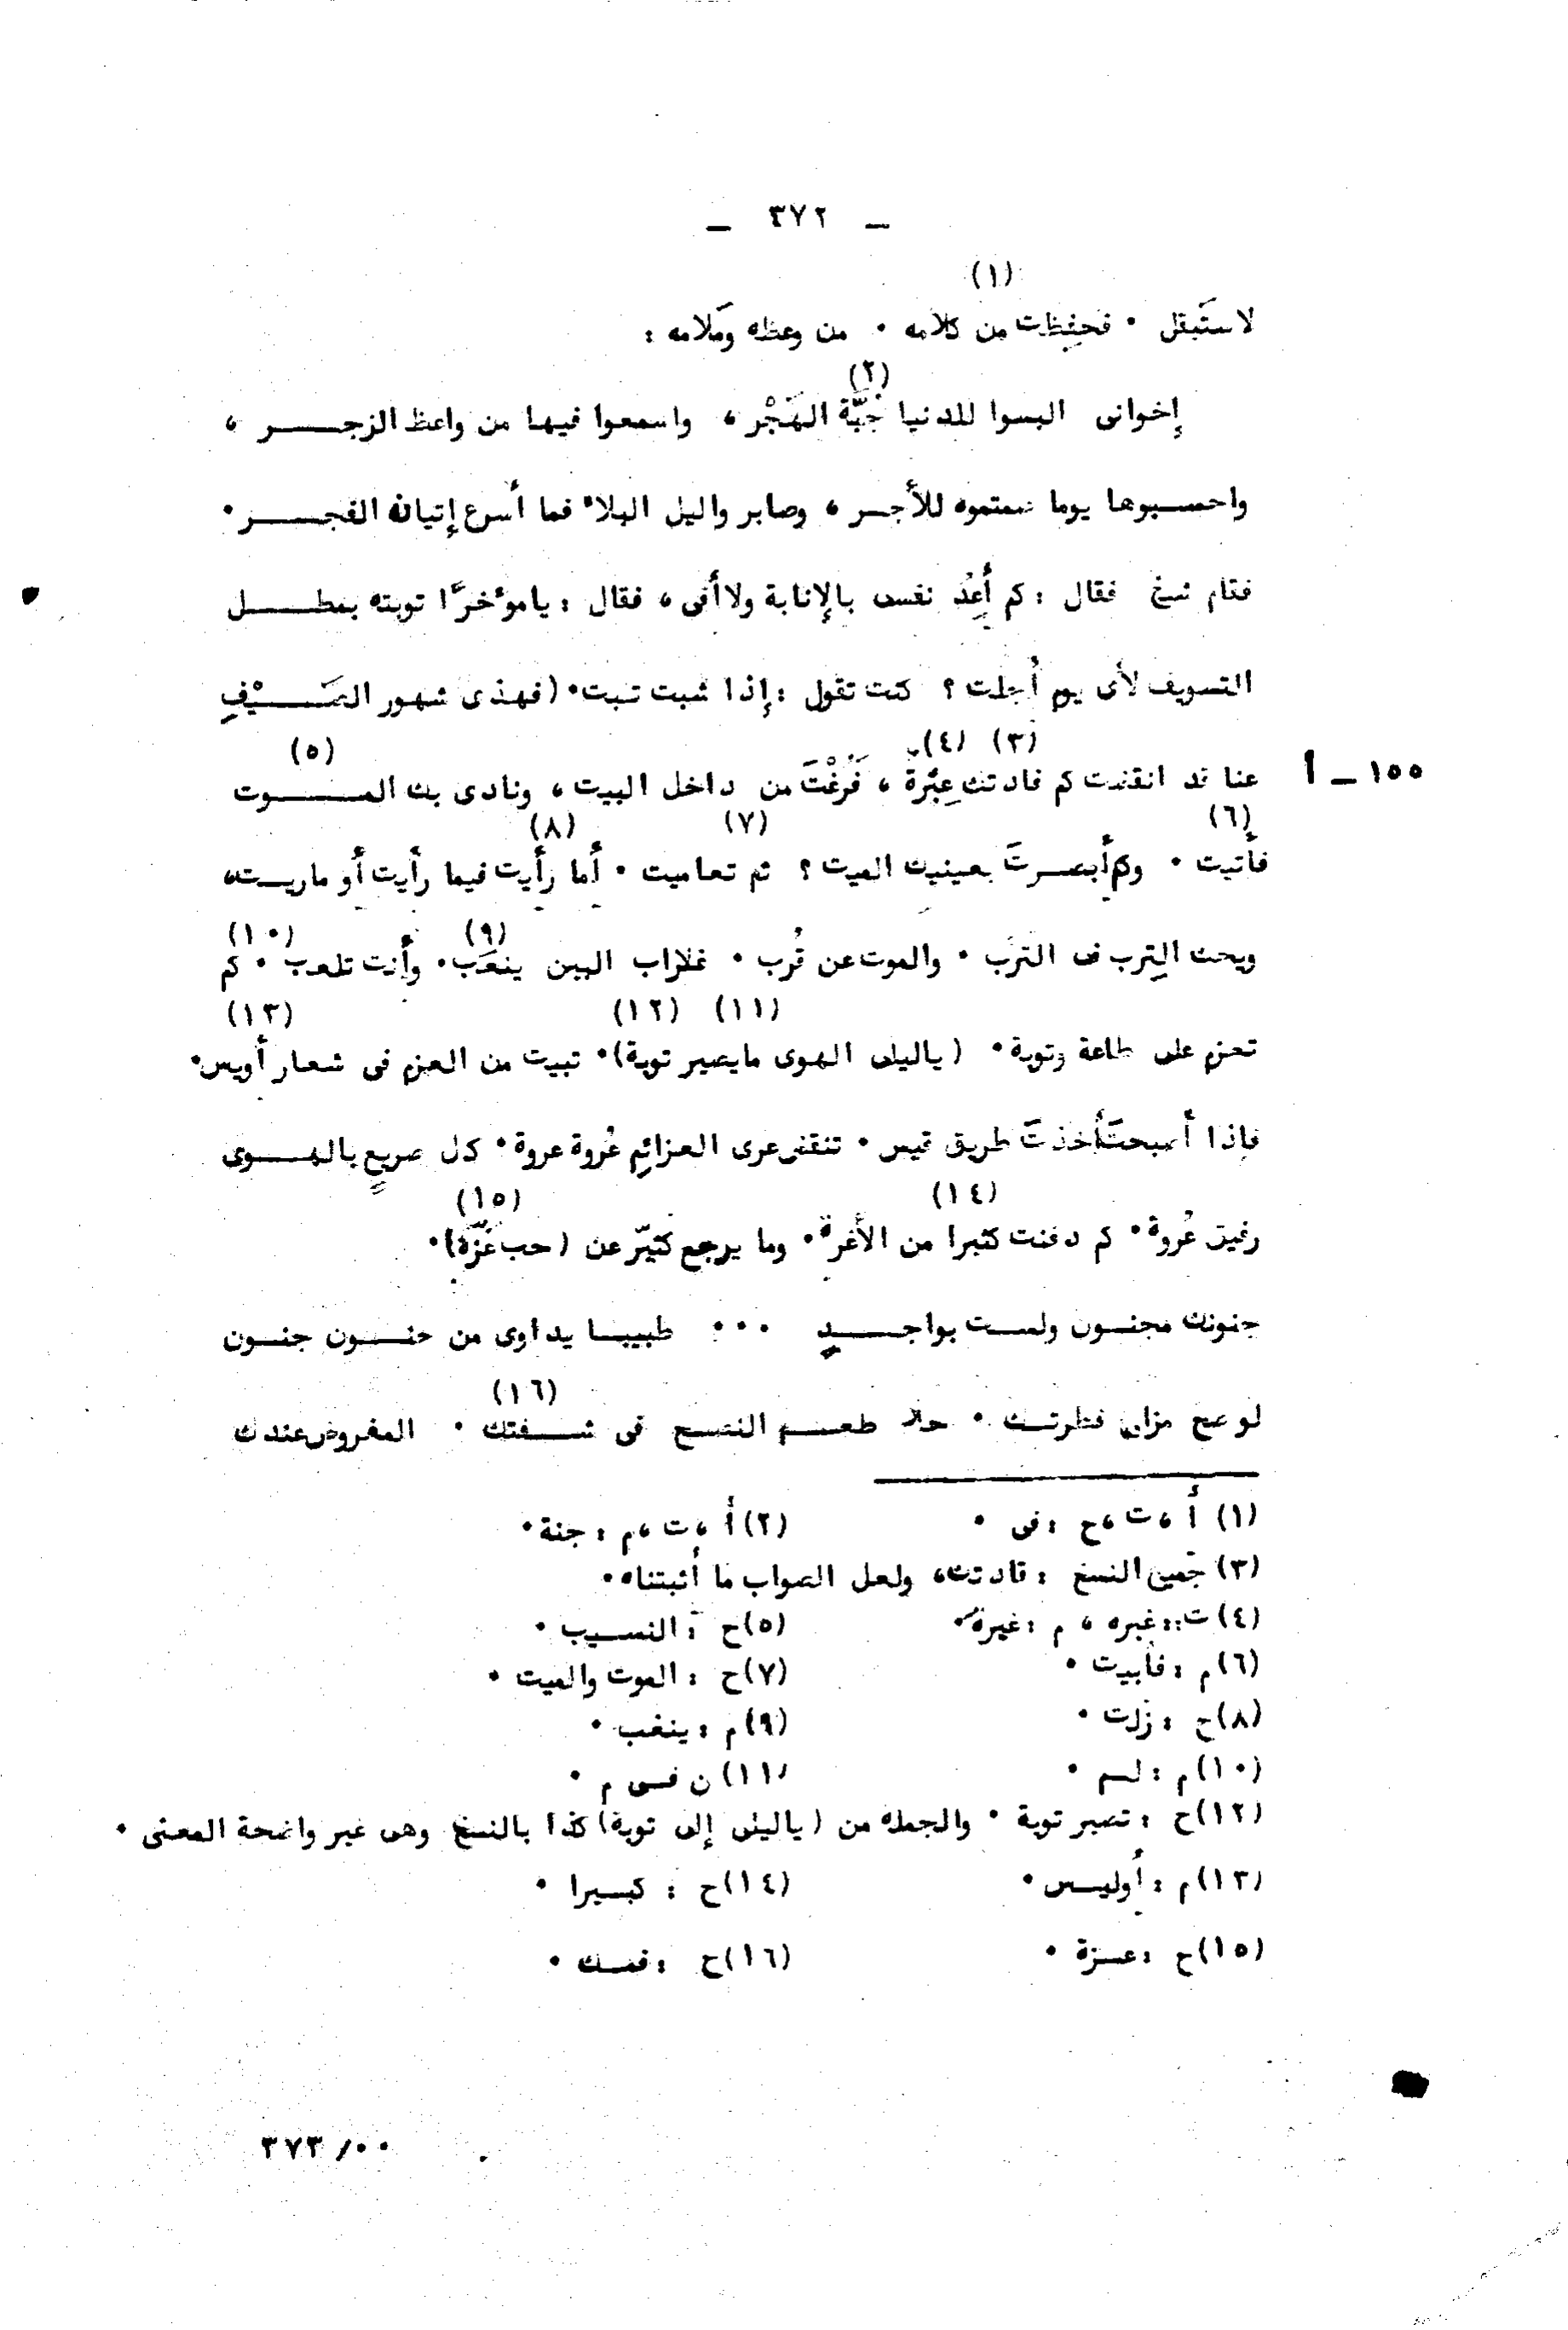 ـ ٣٧٢ ـ
(١)
لاستَبقل ٠ فحفِظت من كلامه ٠ من وعظه ومَلامه :
(٢)
إخوانى البسوا للدنيا جُبَّة الهَجْر ، واسمعوا فيها من واعظ الزجــــر ،
واحســبوها يوما صمتموه للأجــر ، وصابر واليل البلاء فما أسرع إتيانه الفجــــر ٠
فقام شيخ فقال : كم أَعِدُ نفسى بالإنابة ولا أفى ، فقال : يا مؤخرًا توبته بمطـــــل
التسويف لأى يوم أُجلت ؟ كنت تقول : إذا شبت تبت ٠ (فهذى شهور الصَـــيْفِ
(٣) (٤) (٥)
١٥٥ ـ أ عنا قد انقضت كم قادتك عِبْرة ، فَرُغْتَ من داخل البيت ، ونادى بك المـــــوت
(٦) (٧) (٨)
فأتيت ٠ وكم أبصــرتَ بعينيك الميت ؟ ثم تعاميت ٠ أما رأيت فيما رأيت أو ماريــت ،
(٩) (١٠)
ويحك التِرب فى التُرَب ٠ والموت عن قُرب ٠ غراب البين ينعَب ٠ وأنت تلعب ٠ كم
(١١) (١٢) (١٣)
تعزم على طاعة وتوبة ٠ (ياليلى الهوى مايصير توبة) ٠ تبيت من العزم فى شعار أويس ٠
فإذا أصبحتَ أخذتَ طريق قيس ٠ تنقض عرى العزائم عُروة عروة ٠ كل صريعٍ بالهـــوى
(١٤) (١٥)
رفيق عُروة ٠ كم دفنت كثيرا من الأغرة ٠ وما يرجع كثيّر عن (حب عَزَّة) ٠
جنونك مجنــون ولســت بواجـــدٍ ٠٠٠ طبيبــا يداوى من جنـــون جنــون
(١٦)
لو صح مزاج فطرتــك ٠ حلا طعــم النصــح فى شــفتك ٠ المفروض عندك
(١) أ ، ت ، ح : فى ٠
(٢) أ ، ت ، م : جنة ٠
(٣) جميع النسخ : قادتك ، ولعل الصواب ما أثبتناه ٠
(٤) ت : غبره ، م : غيرة ٠
(٥) ح : النســيب ٠
(٦) م : فأبيت ٠
(٧) ح : الموت والميت ٠
(٨) ح : زلت ٠
(٩) م : ينغب ٠
(١٠) م : لــم ٠
(١١) ن فــى م ٠
(١٢) ح : تصير توبة ٠ والجمله من (ياليلى إلى توبة) كذا بالنسخ وهى غير واضحة المعنى ٠
(١٣) م : أوليــس ٠
(١٤) ح : كبــيرا ٠
(١٥) ح : عــزة ٠
(١٦) ح : فمــك ٠
٣٧٣/٠٠